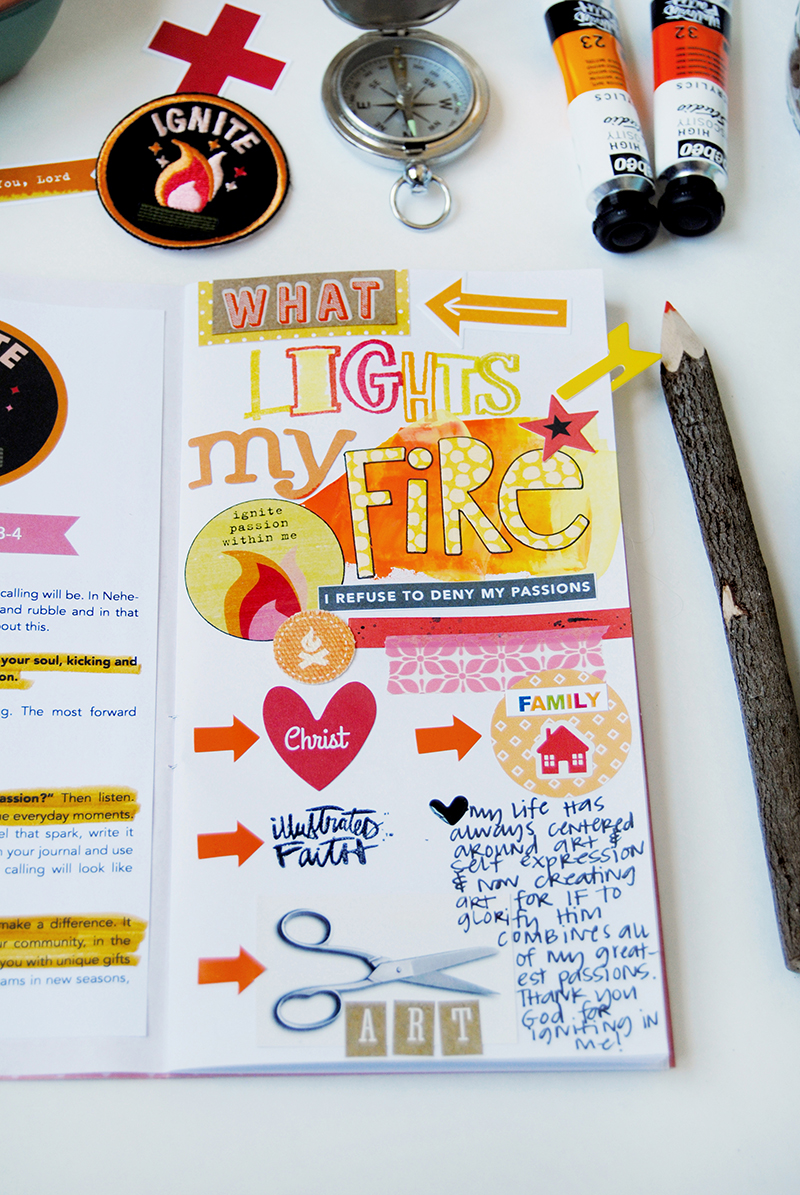 IGNITE
You, Lord
E
W
S
23
32
ACRYLICS
Studio
HIGH
VISCOSITY
Pébéo
WHAT
LIGHTS
my
FiRe
ignite
passion
within me
I REFUSE TO DENY MY PASSIONS
Christ
FAMILY
illustrated
Faith
ART
my life has
always centered
around art &
self expression
& now creating
art for IF to
glorify Him
combines all
of my great-
est passions.
Thank you
God for
igniting in
me!
TE
3-4
calling will be. In Nehe-
and rubble and in that
out this.
your soul, kicking and
on.
g. The most forward
assion?" Then listen.
e everyday moments.
el that spark, write it
your journal and use
calling will look like
make a difference. It
ur community, in the
you with unique gifts
ams in new seasons,